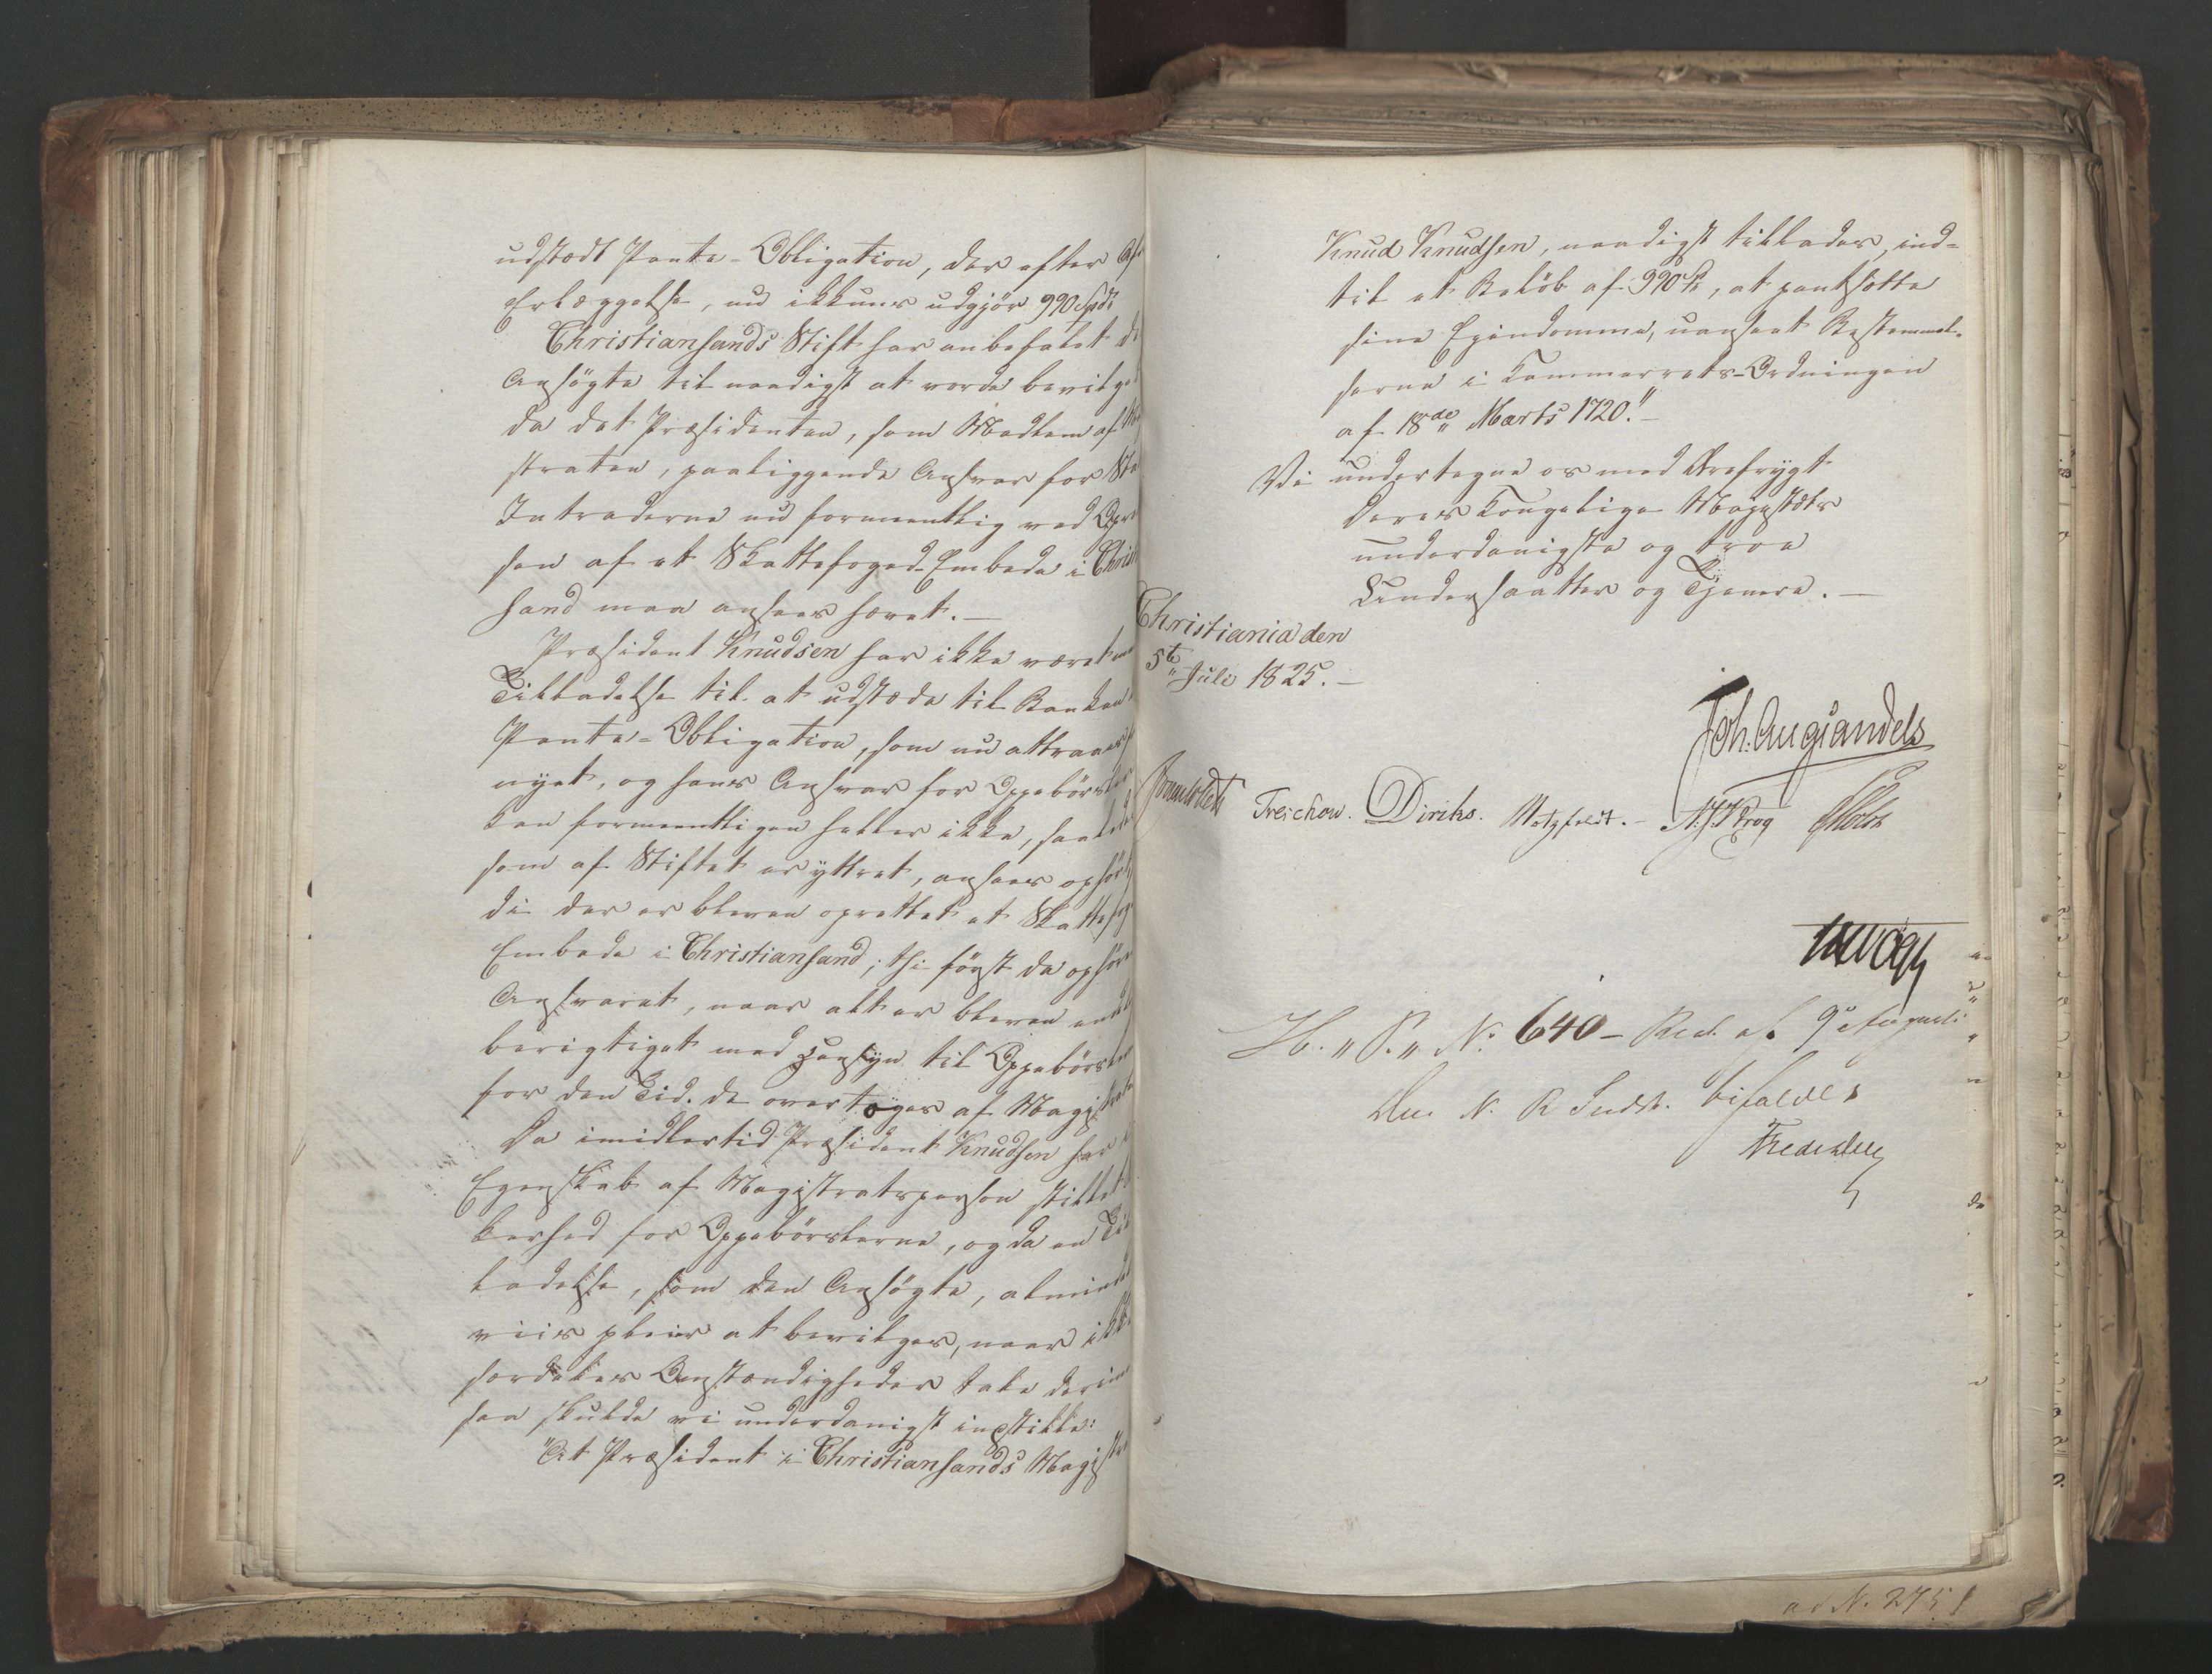 udstædt Pante-Obligation, der efter
Erlæggelse, nu ikkuns udgjör 990 Spd:
Christiansands Stift har anbefalet
Ansögte til naadigst at vorde bevilget
da det Præsidenten, som Medlem af
straten, paaliggende Ansvar for
Intraderne nu formeentlig ved
sen af et Skattefoged-Embede i Christ
sand maa ansees hævet. —
Præsident Knudsen har ikke været
Tilladelse til at udstæde til Banken
Pante-Obligation, som nu attraaes
nyet, og hans Ansvar for Oppebörsler
kan formeentligen heller ikke, saaledes
som af Stiftet er yttret, ansees ophört,
di der er bleven oprettet et Skattefog
Embede i Christiansand; thi först da ophörer
Ansvaret, naar alt er bleven
berigtiget med Hensyn til Oppebörsler
for den Tid, de overtoges af Magistrat
Da imidlertid Præsident Knudsen har
Egenskab af Magistratsperson stillet
kerhed for Oppebörslerne, og da en Til
ladelse, som den Ansögte, almindel
viis pleier at bevilges, naar ikke
særdeles Omstændigheder tale derimod
saa skulde vi underdanigst indstille:
"At Præsident i Christiansands Magist
Knud Knudsen, naadigst tillades, ind=
til et Belöb af 990 Sp, at pantsætte
sine Eiendomme, uanseet Bestemmel=
serne i Kammerrets-Ordningen
af 18de Marts 1720." —
Vi undertegne os med Ærefrygt
Deres Kongelige Majestæts
underdanigste og troe
Undersaatter og Tjenere. —
Christiania den
5te Juli 1825. —
Joh. Aug Sandels
Treschow. Diriks. Motzfeldt. — Krog
H. " S. " No 640 — Res. af 9 Augusti
Den N. R Indst. bifaldes
ad N. 275